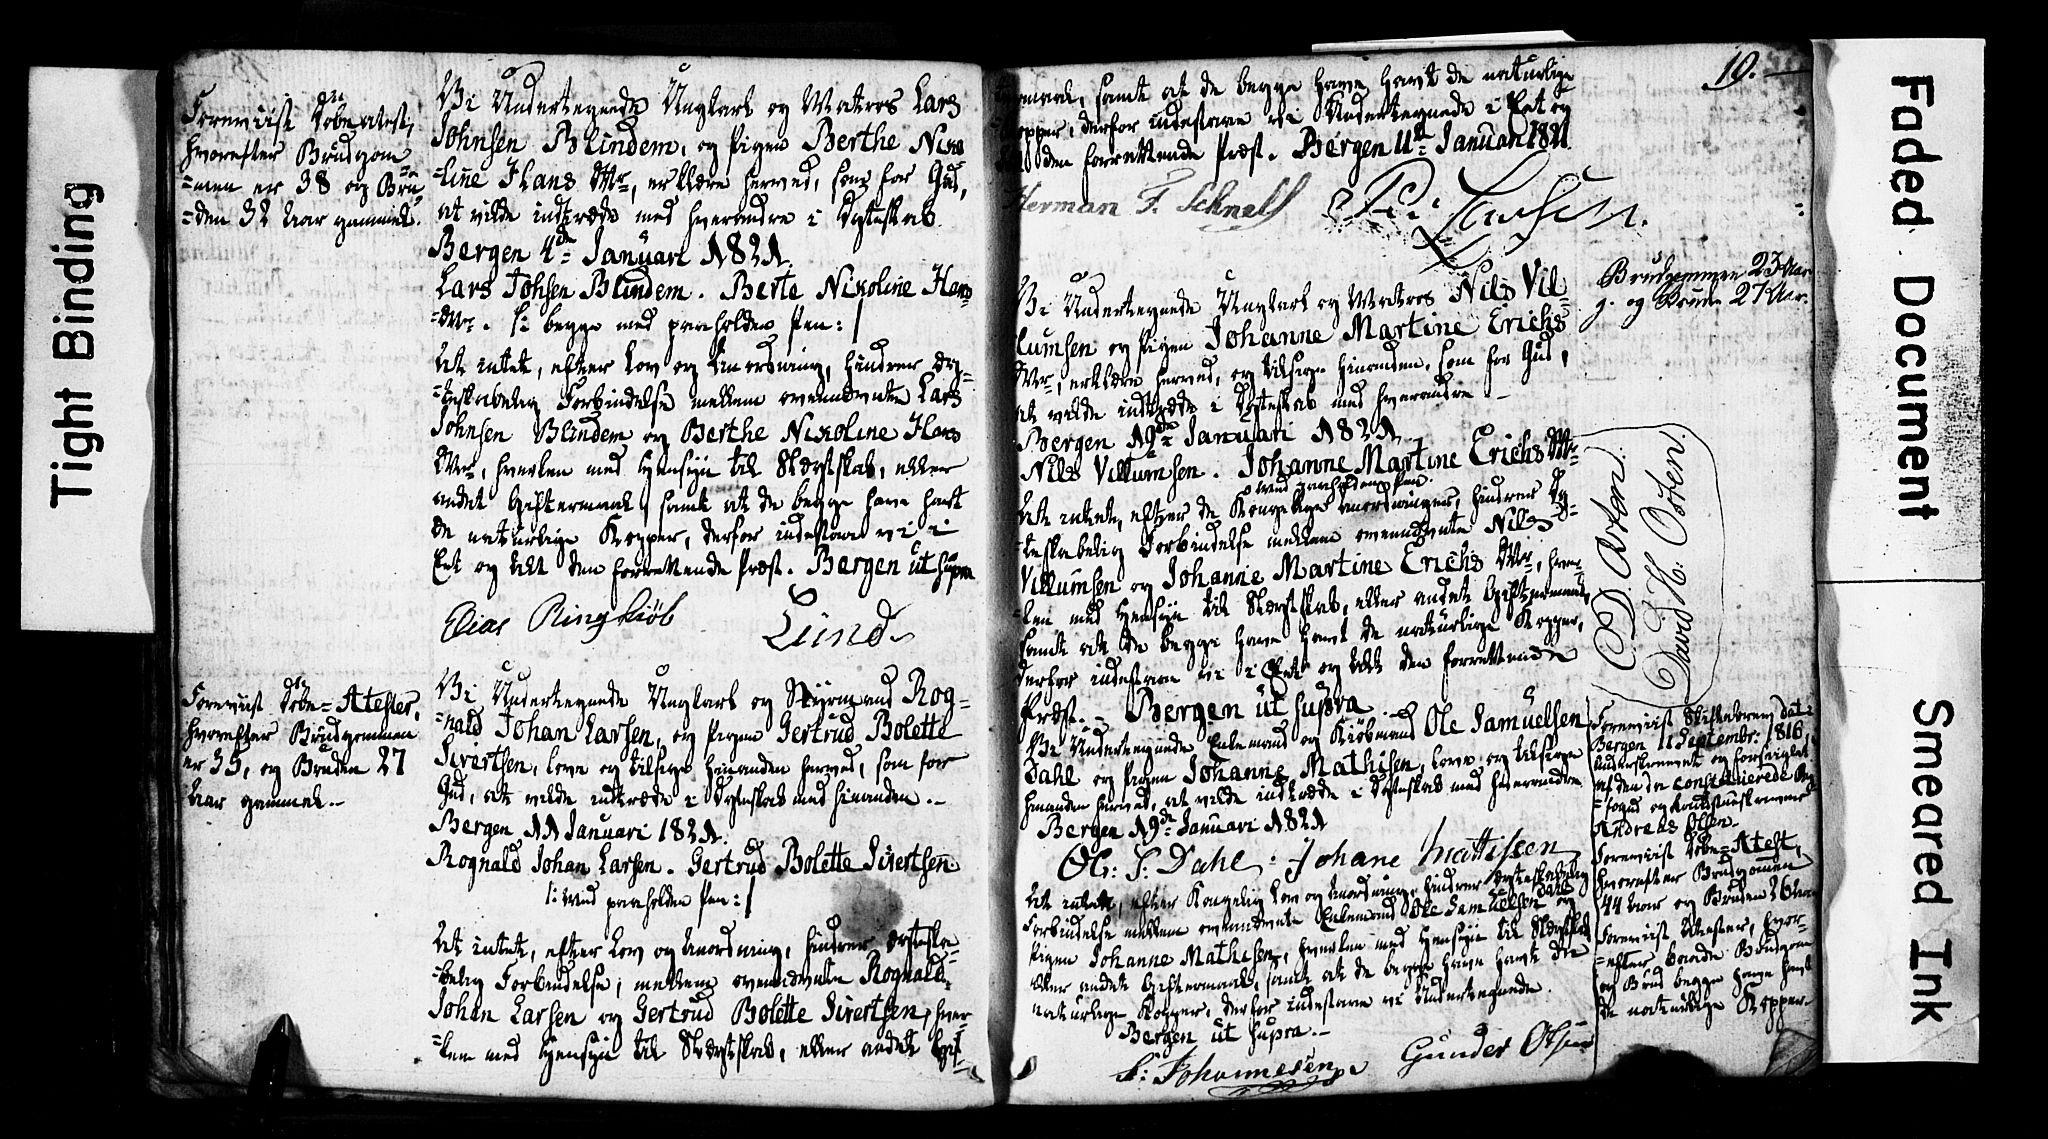 Tight Binding
Foreviist Døbeatest,
hvorefter Brudgom
=men er 38 og Bru
=den 32 Aar gammel.
Vi Undertegnede Ungkarl og Matros Lars
Johnsen Blindem, og Pigen Berthe Niko
=line Hans Dtr, erklære herved, som for Gud,
at vilde indtræde med hverandre i Ægteskab
Bergen 4de Januari 1821.
Lars Johsen Blindem. Berte Nikoline Hans
=Dtr. /: begge med paaholden Pen :/
At intet, efter Lov og Anordning, hindrer Æg-
=teskabelig Forbindelse mellem ovennævnte Lars
Johnsen Blindem og Berthe Nikoline Hans
Dtr, hverken med Hensyn til Slægtskab, eller
andet Giftermaal, samt at de begge have havt
de naturlige Kopper, derfor indestaae vi i
Eet og Alt den forrettende Præst. Bergen ut supra
Elias Ringkiöb Lund
Foreviist Døbe=Atester,
hvorefter Brudgommen
er 35, og Bruden 27
Aar gammel.-
Vi Undertegnede Ungkarl og Styrmand Rog-
=nald Johan Larsen, og Pigen Gertrud Bolette
Sivertsen, love og tilsige hinanden herved, som for
Gud, at vilde indtræde i Ægteskab med hinanden.-
Bergen 11 Januari 1821.
Rognald Johan Larsen. Gertrud Bolette Sivertsen
/: med paaholden Pen :/
At intet, efter Lov og Anordning, hindrer ægteska-
=belig Forbindelse, mellem ovennævnte Rognald
Johan Larsen og Gertrud Bolette Sivertsen, hver-
=ken med Hensyn til Slægtskab, eller andet Gif-
10.
samt at de begge have havt de naturlige
Kopper, derfor indestaae vi Undertegnede i Eet og
Alt den forrettende Præst. Bergen 11te Januari 1821.
Herman F. Schnell
Vi Undertegnede Ungkarl og Matros Nils Vil-
lumsen og Pigen Johanne Martine Erichs
Dtr, erklære herved, og tilsige hinanden, som for Gud,
at vilde indtræde i Ægteskab med hverandre -
Bergen 19de Januari 1821
Nils Villumsen. Johanne Martine Erichs Dtr
med paaholden Pen.
At intet, efter de Kongelige Anordninger, hindrer Æg-
=teskabelig Forbindelse mellem ovennævnte Nils
Villumsen og Johanne Martine Erichs Dtr, hver-
=ken med Hensyn til Slægtskab, eller andet Giftermaal,
samt at de begge have havt de naturlige Kopper,
derfor indestaae vi i Eet og Alt den forrettende
Præst. - Bergen ut supra.
Brudgommen 23 Aar
g. og Brude 27 Aar.
David H. Osten
Vi Undertegnede Enkemand og Kiøbmand Ole Samuelsen
Dahl og Pigen Johanne Mathisen, love og tilsige
hinanden herved, at vilde indtræde i Ægteskab med hverandre
Bergen 19de Januari 1821
Ol: S: Dahl. Johane Mattisen
At intet, efter Kongelig Lov og Anordning, hindrer ægteskabelig
Forbindelse mellem ovennævnte Enkemand Ole Samuelsen Dahl og
Pigen Johanne Mathisen, hverken med Hensyn til Slægtskab
eller andet Giftermaal, samt at de begge have havt de
naturlige Kopper, derfor indestaae vi Undertegnede.
Bergen ut supra.-
S: Johannesen Gunder Olsen
Foreviist Skiftebrev, dat:
Bergen 11 September: 1816,
underskrevet og forseiglet
af den da constituerede By-
=foged og Raadstueskriver
Andreas Olsen.-
Foreviist Døbe=Atest,
hvorefter Brudgommen
44 Aar og Bruden 26 Aar
Foreviist Atester, hvor-
=efter baade Brudgom
og Brud begge have havt
de naturlige Kopper.
Faded Document
Smeared Ink